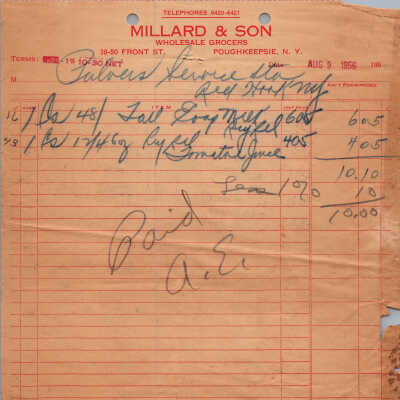 TELEPHONES 4420-4421
MILLARD & SON
WHOLESALE GROCERS
18-50 FRONT ST. POUGHKEEPSIE, N. Y.
TERMS: -10-30 NET AUG 9 1956 195
M Pulvers Service Sta
Red Hook NY
ITEM
16 1 Cs 48/ Tall Evap Milk Krysel 605 6.05
43 1 Cs 12/46oz Krysel Tomato Juice 405 4.05
10.10
Less 1% 10
10.00
Paid
A.E.